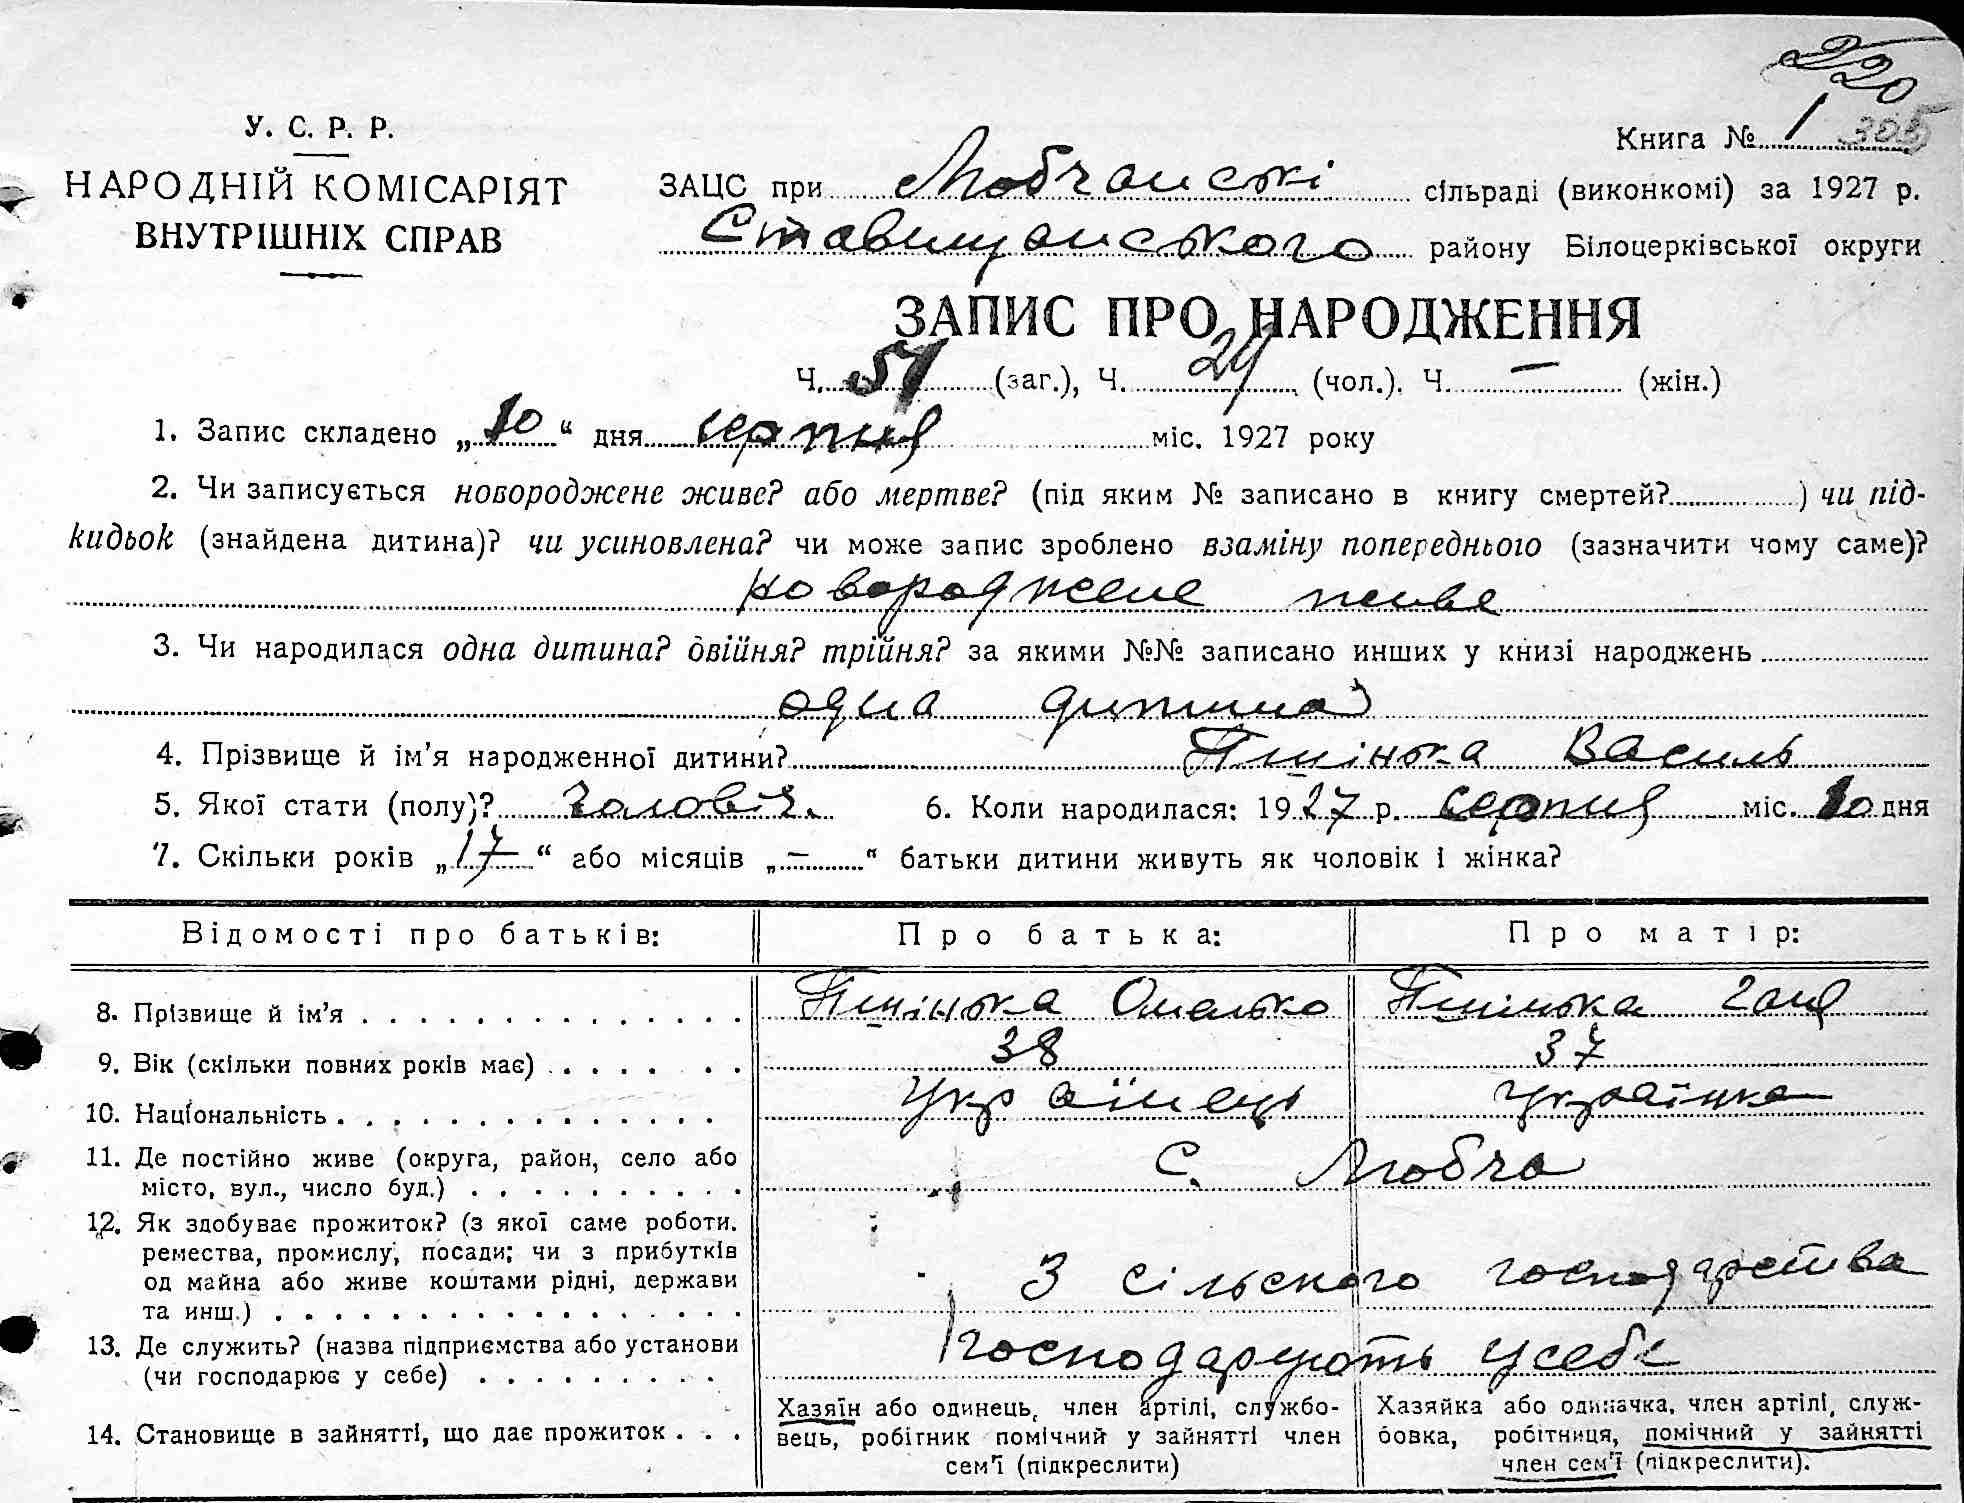 220
Книга № 1 305
У. С. Р. Р.
НАРОДНІЙ КОМІСАРІЯТ
ВНУТРІШНІХ СПРАВ
ЗАЦС при Любчанські сільраді (виконкомі) за 1927 р.
Ставищанського району Білоцерківської округи
ЗАПИС ПРО НАРОДЖЕННЯ
Ч. 51 (заг.), Ч. 24 (чол.). Ч. — (жін.)
1. Запис складено „10“ дня серпня міс. 1927 року
2. Чи записується новороджене живе? або мертве? (під яким № записано в книгу смертей?..........) чи під-
кидьок (знайдена дитина)? чи усиновлена? чи може запис зроблено взаміну попереднього (зазначити чому саме)?
новороджене живе
3. Чи народилася одна дитина? двійня? трійня? за якими №№ записано инших у книзі народжень
одна дитина
4. Прізвище й ім’я народженної дитини? Пшінька Василь
5. Якої стати (полу)? чоловіч. 6. Коли народилася: 1927 р. серпня міс. 10 дня
7. Скільки років „17“ або місяців „—“ батьки дитини живуть як чоловік і жінка?
Відомості про батьків: Про батька: Про матір:
8. Прізвище й ім’я . . . . Пшінька Омелько Пшінька Ганя
9. Вік (скільки повних років має) . . . . 38 37
10. Національність . . . . Українець українка
11. Де постійно живе (округа, район, село або
місто, вул., число буд.) . . . . с. Любча
12. Як здобуває прожиток? (з якої саме роботи.
ремества, промислу, посади; чи з прибутків
од майна або живе коштами рідні, держави
та инш.) . . . . З сільського господарства
13. Де служить? (назва підприємства або установи
(чи господарює у себе) . . . . господарюють усебе
14. Становище в зайнятті, що дає прожиток . . .
Хазяїн або одинець, член артілі, службо-
вець, робітник помічний у зайнятті член
сем’ї (підкреслити)
Хазяйка або одиначка, член артілі, служ-
бовка, робітниця, помічний у зайнятті
член сем’ї (підкреслити).